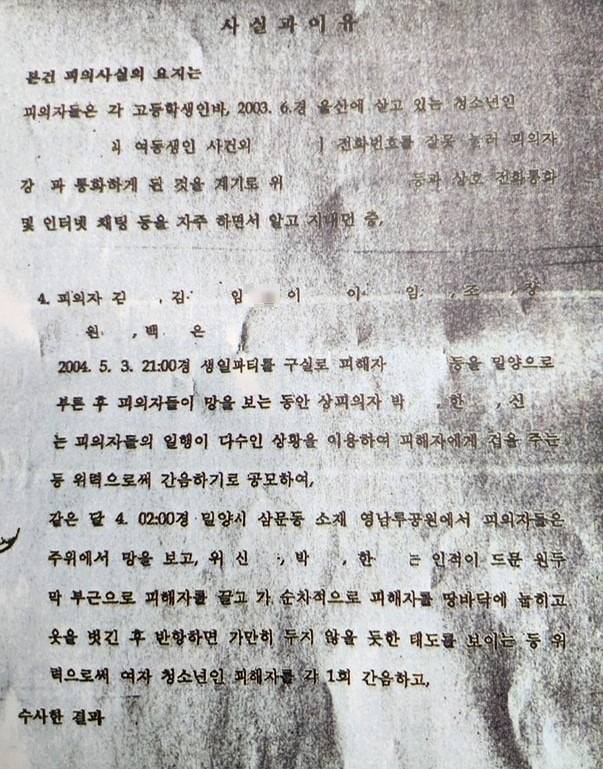 사실과이유
본건 피의사실의 요지는
피의자들은 각 고등학생인바, 2003. 6.경 울산에 살고 있는 청소년인
여동생인 사건외 전화번호를 잘못 눌러 피의자
강 과 통화하게 된 것을 계기로 위 등과 상호 전화통화
및 인터넷 채팅 등을 자주 하면서 알고 지내던 중,
4. 피의자 김 , 김 임 이 이 임 , 조 , 장
원 , 백 은
2004. 5. 3. 21:00경 생일파티를 구실로 피해자 등을 밀양으로
부른 후 피의자들이 망을 보는 동안 상피의자 박 , 한 , 신
는 피의자들의 일행이 다수인 상황을 이용하여 피해자에게 겁을 주는
등 위력으로써 간음하기로 공모하여,
같은 달 4. 02:00경 밀양시 삼문동 소재 영남루공원에서 피의자들은
주위에서 망을 보고, 위 신 , 박 , 한 는 인적이 드문 원두
막 부근으로 피해자를 끌고 가 순차적으로 피해자를 땅바닥에 눕히고
옷을 벗긴 후 반항하면 가만히 두지 않을 듯한 태도를 보이는 등 위
력으로써 여자 청소년인 피해자를 각 1회 간음하고,
수사한 결과